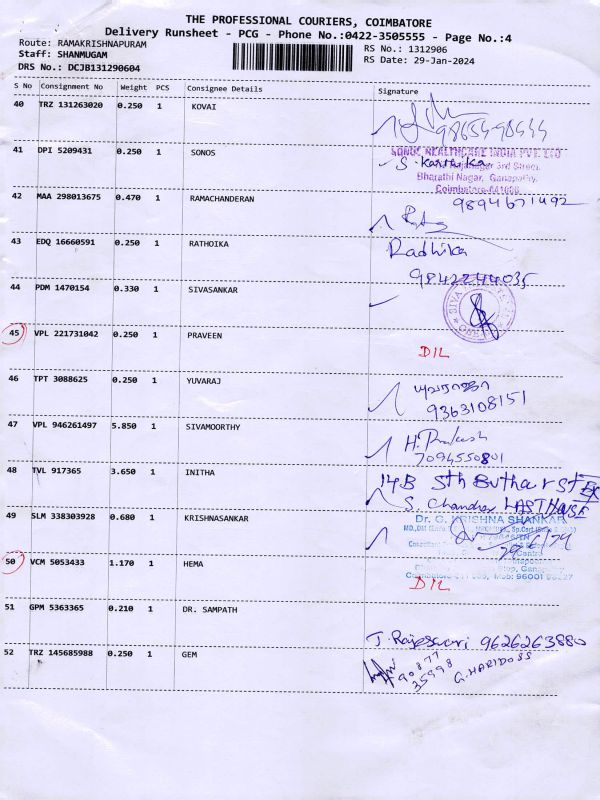 THE PROFESSIONAL COURIERS, COIMBATORE
Delivery Runsheet - PCG - Phone No.:0422-3505555 - Page No.:4
Route: RAMAKRISHNAPURAM
RS No.: 1312906
Staff: SHANMUGAM
RS Date: 29-Jan-2024
DRS No.: DCJB131290604
S No Consignment No Weight PCS Consignee Details Signature
40 TRZ 131263020 0.250 1 KOVAI
41 DPI 5209431 0.250 1 SONOS
SONUS HEALTHCARE INDIA PVT. LTD
S. Karthika 3rd Street,
Bharathi Nagar, Ganapathy,
Coimbatore-641006
42 MAA 298013675 0.470 1 RAMACHANDERAN
9894671492
43 EDQ 16660591 0.250 1 RATHOIKA
Radhika
9842244035
44 PDM 1470154 0.330 1 SIVASANKAR
45 VPL 221731042 0.250 1 PRAVEEN
DIL
46 TPT 3088625 0.250 1 YUVARAJ
யுவராஜா
9363108151
47 VPL 946261497 5.850 1 SIVAMOORTHY
H. Prakash
7094550801
48 TVL 917365 3.650 1 INITHA
14B 5th Buthar St
S. Chandra LAST HOUSE
49 SLM 338303928 0.680 1 KRISHNASANKAR
Dr. G. KRISHNA SHANKAR
50 VCM 5053433 1.170 1 HEMA
DIL
51 GPM 5363365 0.210 1 DR. SAMPATH
J. Rajeswari 9626263880
52 TRZ 145685988 0.250 1 GEM
90877
35998
G. HARIDOSS